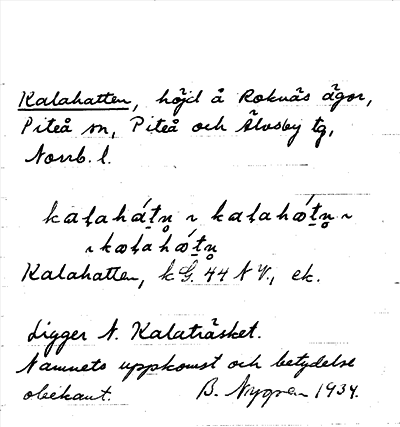 Kalahatten, höjd å Roknäs ägor,
Piteå sn, Piteå och Älvsby tg,
Norrb. l.
kalahátn ~ kalahǿtn ~
~ kœlahǿtn
Kalahatten, kG. 44 N V., ek.
Ligger N. Kalaträsket.
Namnets uppkomst och betydelse
obekant. B. Nygren 1934.